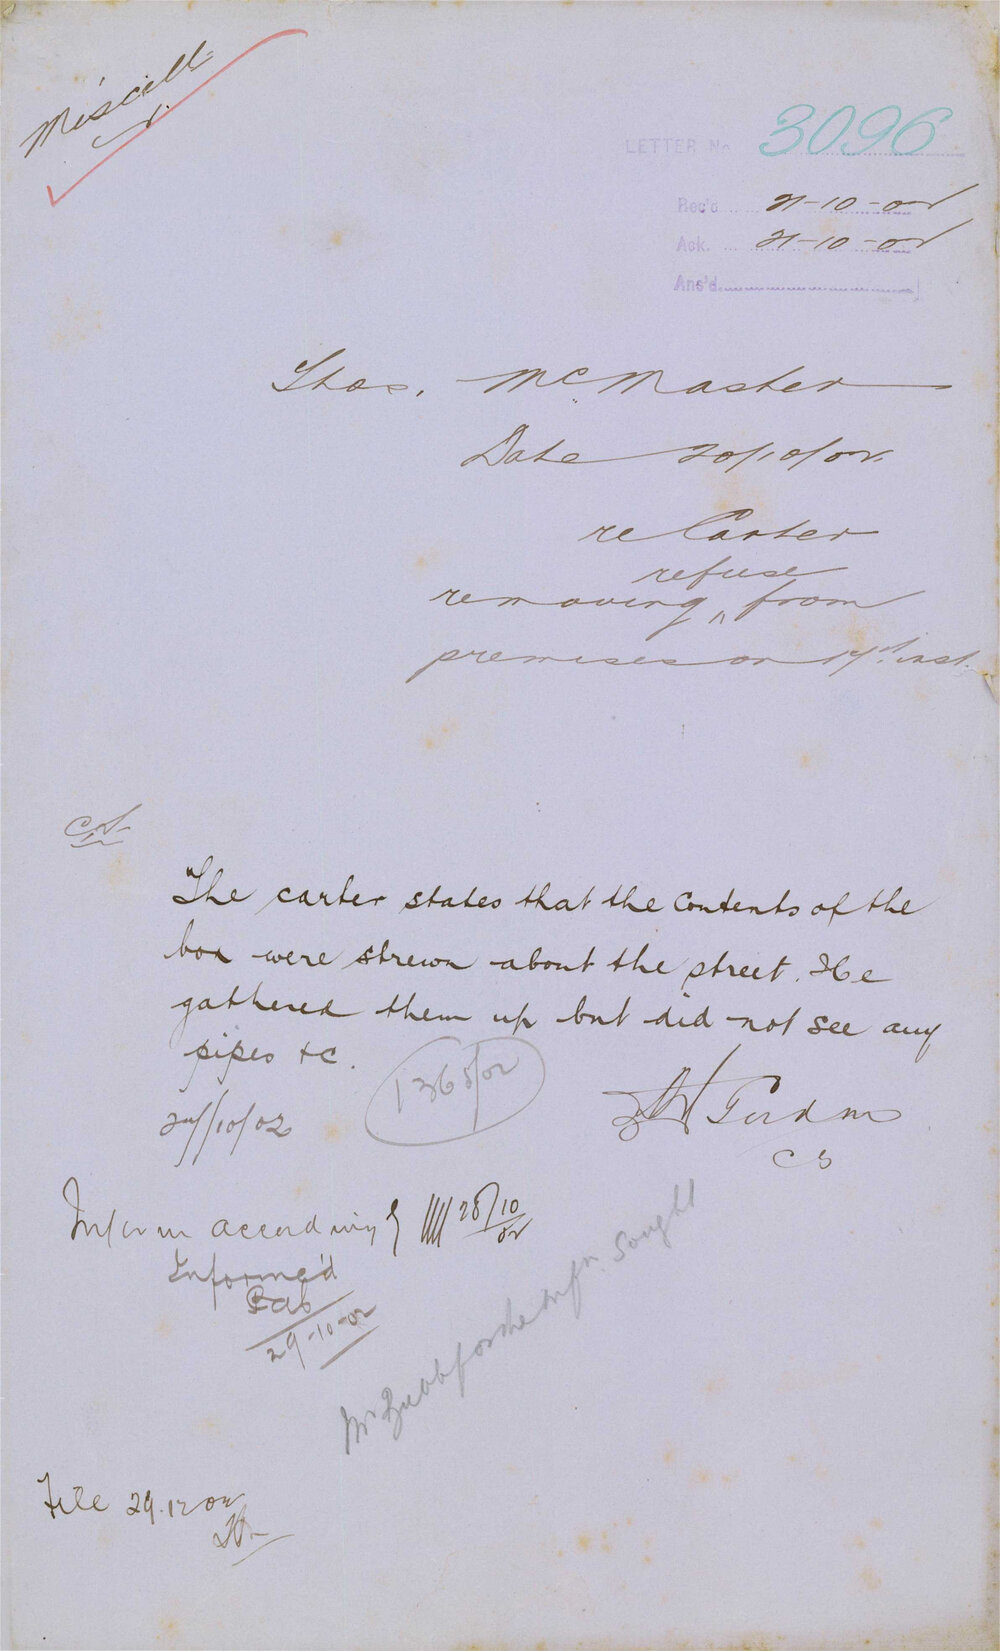 Miscell
LETTER No 3096
Rec'd 21-10-02
Ack. 21-10-02
Ans'd
Thos. McMaster
Date 20/10/02.
re Carter
refuse
removing ^ from
premises on 17th inst.
The carter states that the contents of the
box were strewn about the street. He
gathered them up but did not see any
pipes &c.
1365/02
/10/02
CS
Inform accordingly 28/10/02
Informed
29-10-02
Mr for the infn. sought
File 29.12 02